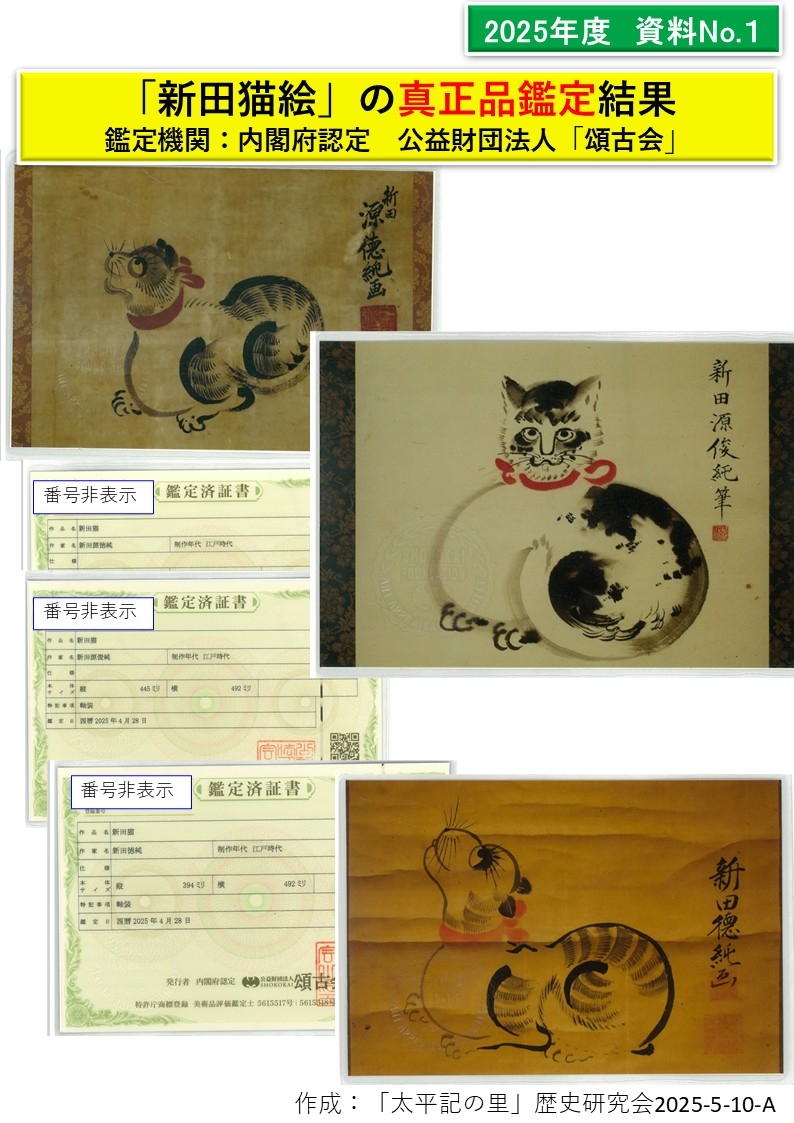 2025年度 資料No.1
「新田猫絵」の真正品鑑定結果
鑑定機関：内閣府認定 公益財団法人「頌古会」
新田
源徳純画
新田源俊純筆
番号非表示
鑑定済証書
作品名 新田猫
作家名 新田源徳純 制作年代 江戸時代
仕様
番号非表示
鑑定済証書
作品名 新田猫
作家名 新田源俊純 制作年代 江戸時代
仕様
本体サイズ 縦 445ミリ 横 492ミリ
特記事項 軸装
鑑定日 西暦2025年4月28日
番号非表示
鑑定済証書
登録番号
作品名 新田猫
作家名 新田徳純 制作年代 江戸時代
仕様
本体サイズ 縦 394ミリ 横 492ミリ
特記事項 軸装
鑑定日 西暦2025年4月28日
発行者 内閣府認定 公益財団法人 SHOKOKAI 頌古会
特許庁商標登録 美術品評価鑑定士 5615517号
新田徳純画
作成：「太平記の里」歴史研究会2025-5-10-A